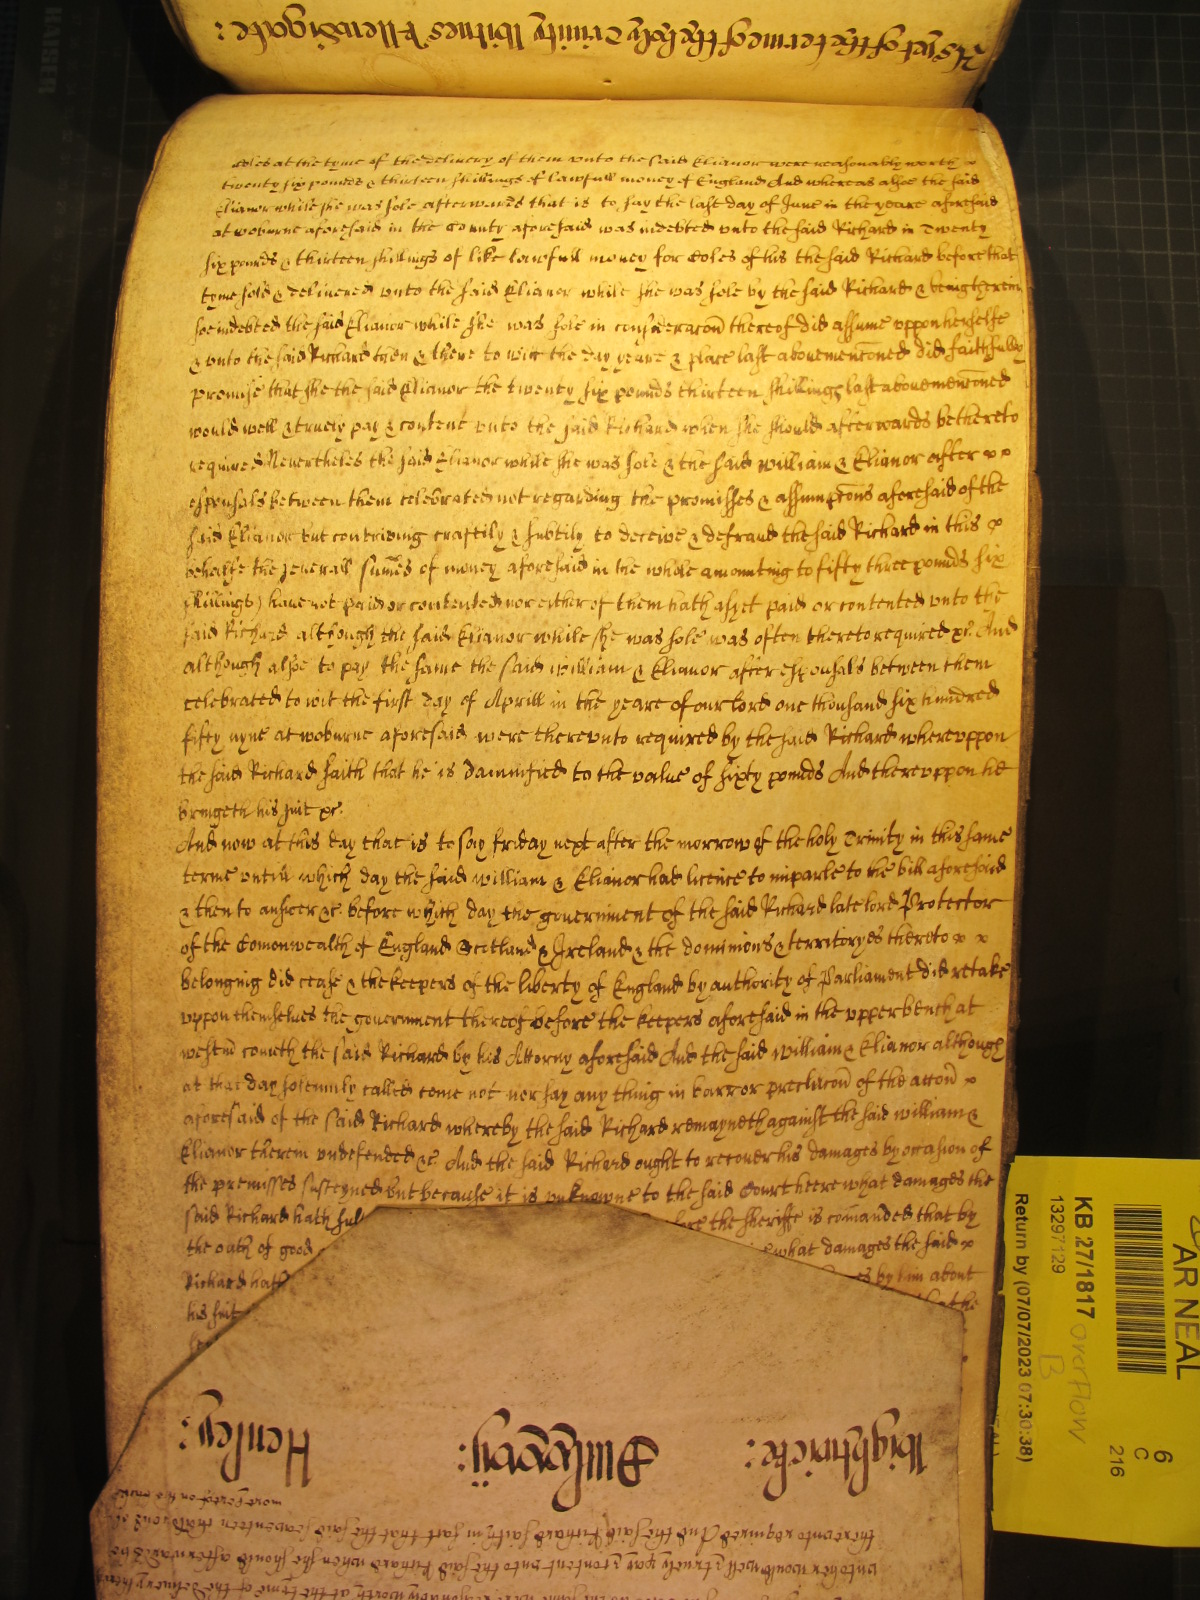 As yet of the terme of the holy Trinity Witnes
Coles at the tyme of the delivery of them unto the said Elianor were reasonably worth
twenty six pounds & thirteen shillings of lawfull money of England And whereas alsoe the said
Elianor while she was sole afterwards that is to say the last day of June in the yeare aforesaid
at woburne aforesaid in the County aforesaid was indebted unto the said Richard in Twenty
six pounds & thirteen shillings of like lawfull money for Coles of his the said Richard before that
tyme sold & delivered unto the said Elianor while she was sole by the said Richard & being therein
soe indebted the said Elianor while she was sole in consideracon thereof did assume uppon herselfe
& unto the said Richard then & there to witt the day yeare & place last abovemenconed did faithfully
promise that she the said Elianor the twenty six pounds thirteen shillings last abovemenconed
would well & truely pay & content unto the said Richard when she should afterwards be thereto
required Nevertheles the said Elianor while she was sole & the said William & Elianor after
espousals between them celebrated not regarding the promisses & assumptons aforesaid of the
said Elianor but contriving craftily & subtily to deceive & defraud the said Richard in this
behalfe the severall sumes of money aforesaid in the whole amounting to fifty three pounds six
shillings) have not paid or contented nor either of them hath as yet paid or contented unto the
said Richard although the said Elianor while she was sole was often thereto required &c. And
although alsoe to pay the same the said William & Elianor after espousals between them
celebrated to wit the first day of Aprill in the yeare of our lord one thousand six hundred
fifty nyne at woburne aforesaid were thereunto required by the said Richard whereuppon
the said Richard saith that he is damnified to the value of sixty pounds And thereuppon he
bringeth his suit &c.
And now at this day that is to say friday next after the morrow of the holy Trinity in this same
terme untill which day the said William & Elianor had licence to imparle to the bill aforesaid
& then to answer &c. before which day the government of the said Richard late lord Protector
of the Comonwealth of England Scotland & Ireland & the dominions & territoryes thereto
belonging did cease & the keepers of the liberty of England by authority of Parliament did retake
uppon themselves the government thereof before the keepers aforesaid in the upper bench at
westm̄ cometh the said Richard by his Attorny aforesaid And the said William & Elianor although
at that day solemnly called come not nor say any thing in barr or preclucon of the accon
aforesaid of the said Richard whereby the said Richard remayneth against the said William &
Elianor therein undefended &c. And the said Richard ought to recover his damages by occasion of
the premisses susteyned But because it is unknowne to the said Court heere what damages the
said Richard hath the Sheriffe is comanded that by
the oath of good what damages the said
Richard hath by him about
his suit that the
Wightwicke:
Henley:
more hereof on the
thereunto required And the said Richard saith in fact that the said seaventeen chaldrons of
unto her would well & truely pay & content unto the said Richard when she should afterwards be
reasonably worth at the tyme of the delivery
AR NEAL
6
C
216
KB 27/1817
13297129
Return by (07/07/2023 07:30:38)
overflow
B
KAISER